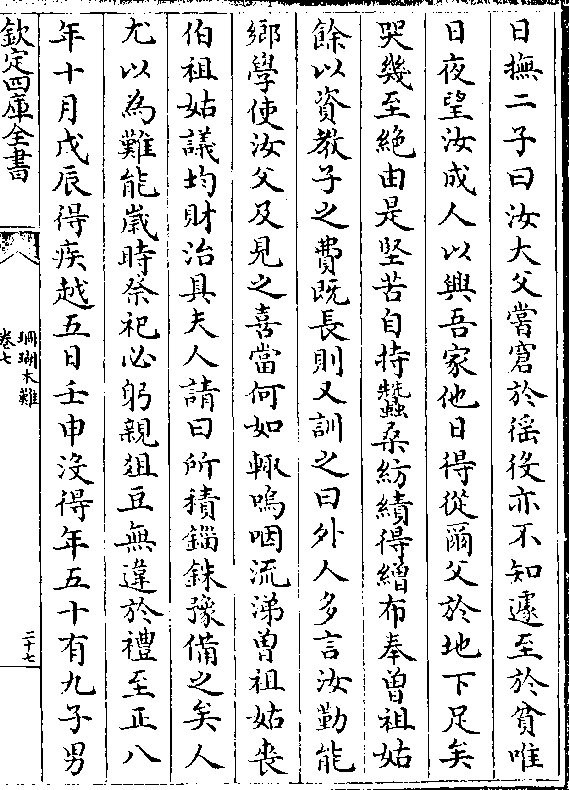 日撫二子曰汝大父嘗窘於徭役亦不知遽至於貧唯
日夜望汝成人以興吾家他日得從爾父於地下足矣
哭幾至絶由是堅苦自持蠶桑紡績得繒布奉曽祖姑
餘以資教子之費既長則又訓之曰外人多言汝勤能
鄉學使汝父及見之喜當何如輙嗚咽流涕曽祖姑䘮
伯祖姑議均財治具夫人請曰所積錙銖豫備之矣人
尤以為難能嵗時祭祀必躬親俎豆無違於禮至正八
年十月戊辰得疾越五日壬申沒得年五十有九子男
欽定四庫全書
珊瑚木難
卷七
二十七